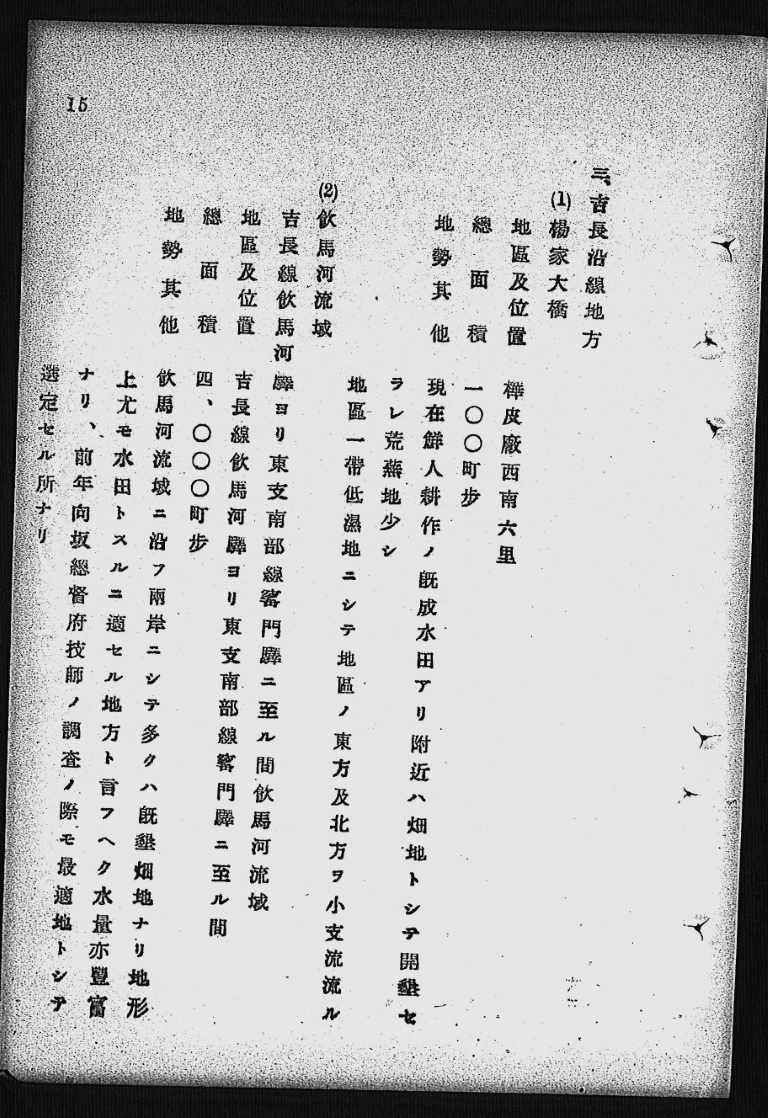 三、吉長沿線地方
(1)楊家大橋
地區及位置 樺皮廠西南六里
總面積 一〇〇町步
地勢其他 現在鮮人耕作ノ既成水田アリ附近ハ畑地トシテ開墾セ
ラレ荒蕪地少シ
地區一帶低濕地ニシテ地區ノ東方及北方ヲ小支流流ル
(2)飮馬河流域
吉長線飮馬河驛ヨリ東支南部線窰門驛ニ至ル間飮馬河流域
地區及位置 吉長線飮馬河驛ヨリ東支南部線窰門驛ニ至ル間
總面積 四、〇〇〇町步
地勢其他 飮馬河流域ニ沿フ兩岸ニシテ多クハ既墾畑地ナリ地形
上尤モ水田トスルニ適セル地方ト言フヘク水量亦豐富
ナリ、前年向坂總督府技師ノ調査ノ際モ最適地トシテ
選定セル所ナリ
15